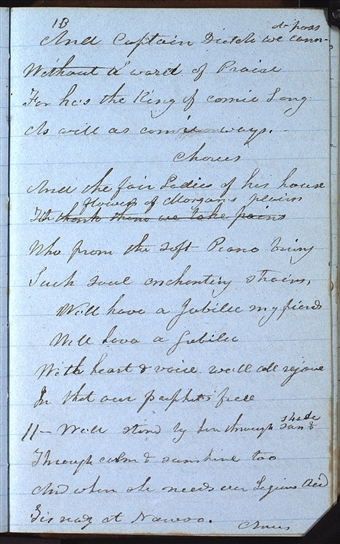 10
And Captain Dutch we cannot pass
Without a word of Praise
For he's the King of comic Song
As will as comic ways. –
Chorus
And the fair Ladies of his house
Flowers of Morgan's plains
Th thank them we take pains
Who from the soft Piano bring
Such soul enchanting strains,
Well have a Jubilee my friends
We'll have a Jubilee
With heart & voice we'll all rejoice
In that our prophet's free
11 – We'll stand by him through shade
sun &
Through calm & sunshine too
And when he needs our Legions Aid
Tis ready at Nauvoo.
Chorus